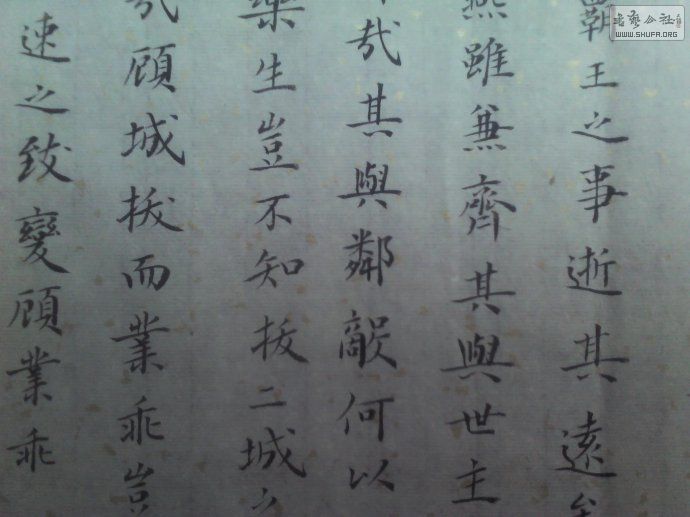 霸王之事逝其遠矣
燕雖兼齊其與世主
哉其與鄰敵何以
樂生豈不知拔二城之
哉顧城拔而業乖豈
速之致變顧業乖
書藝公社
WWW.SHUFA.ORG